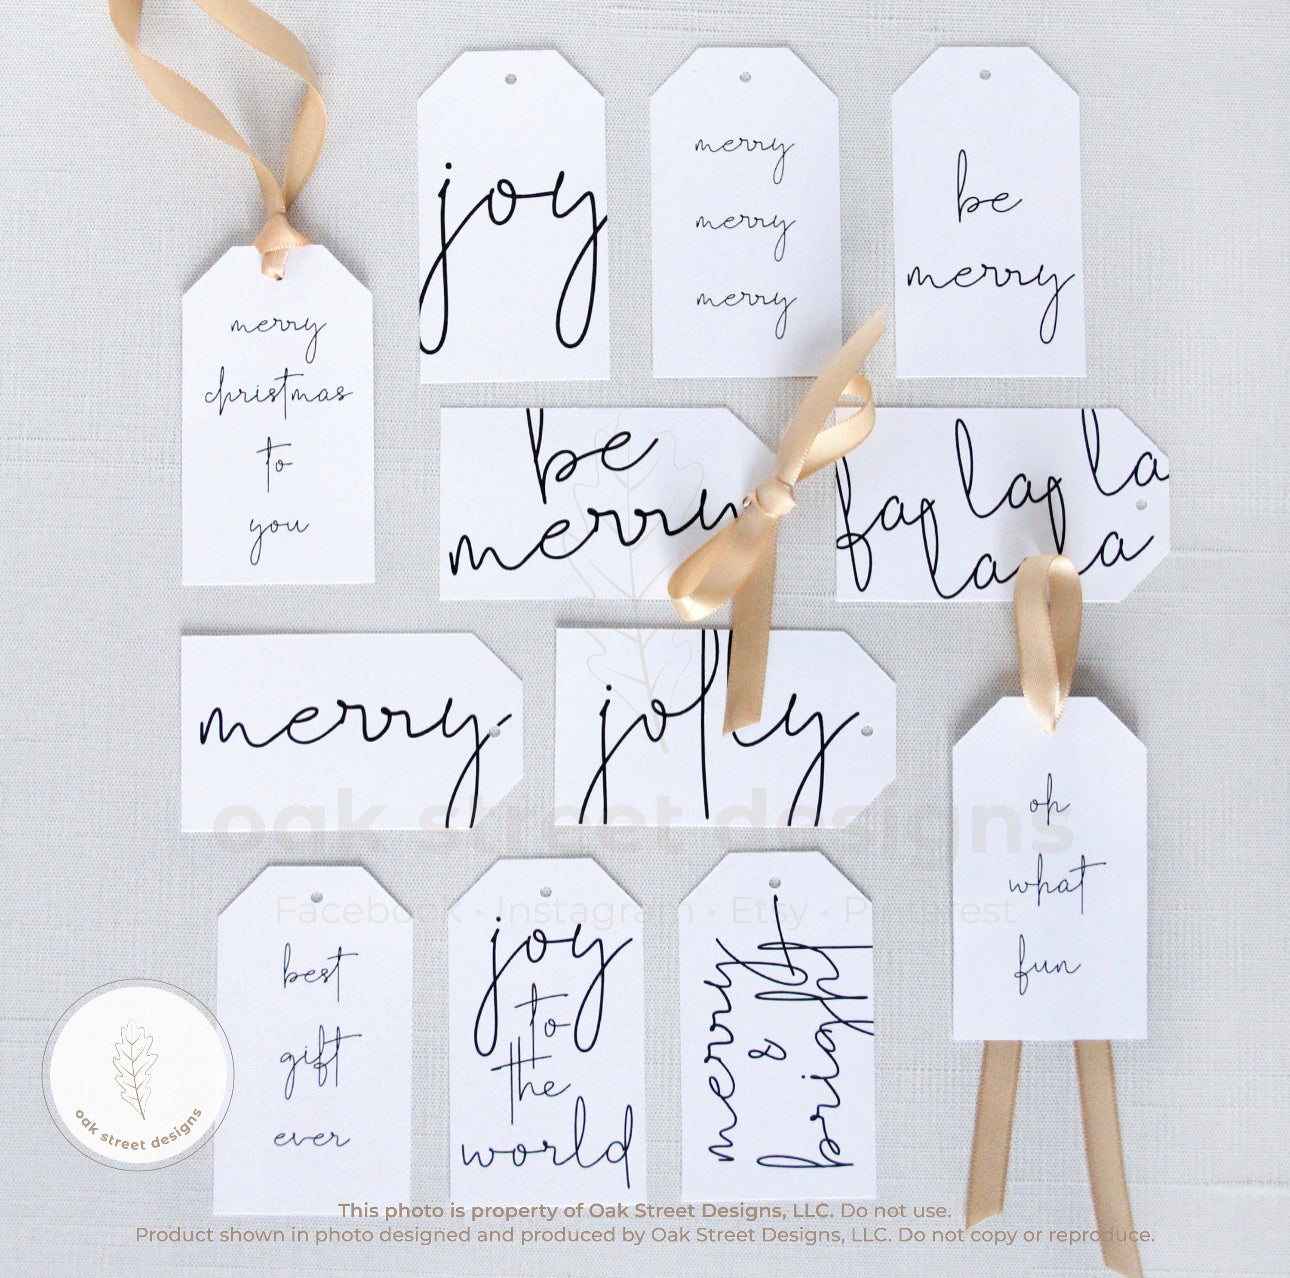 joy
merry
merry
merry
be
merry
merry
christmas
to
you
be
merry
fa la la
la la
merry
jolly
oh
what
fun
best
gift
ever
joy
to
the
world
merry
&
bright
oak street designs
Facebook · Instagram · Etsy · Pinterest
oak street designs
This photo is property of Oak Street Designs, LLC. Do not use.
Product shown in photo designed and produced by Oak Street Designs, LLC. Do not copy or reproduce.